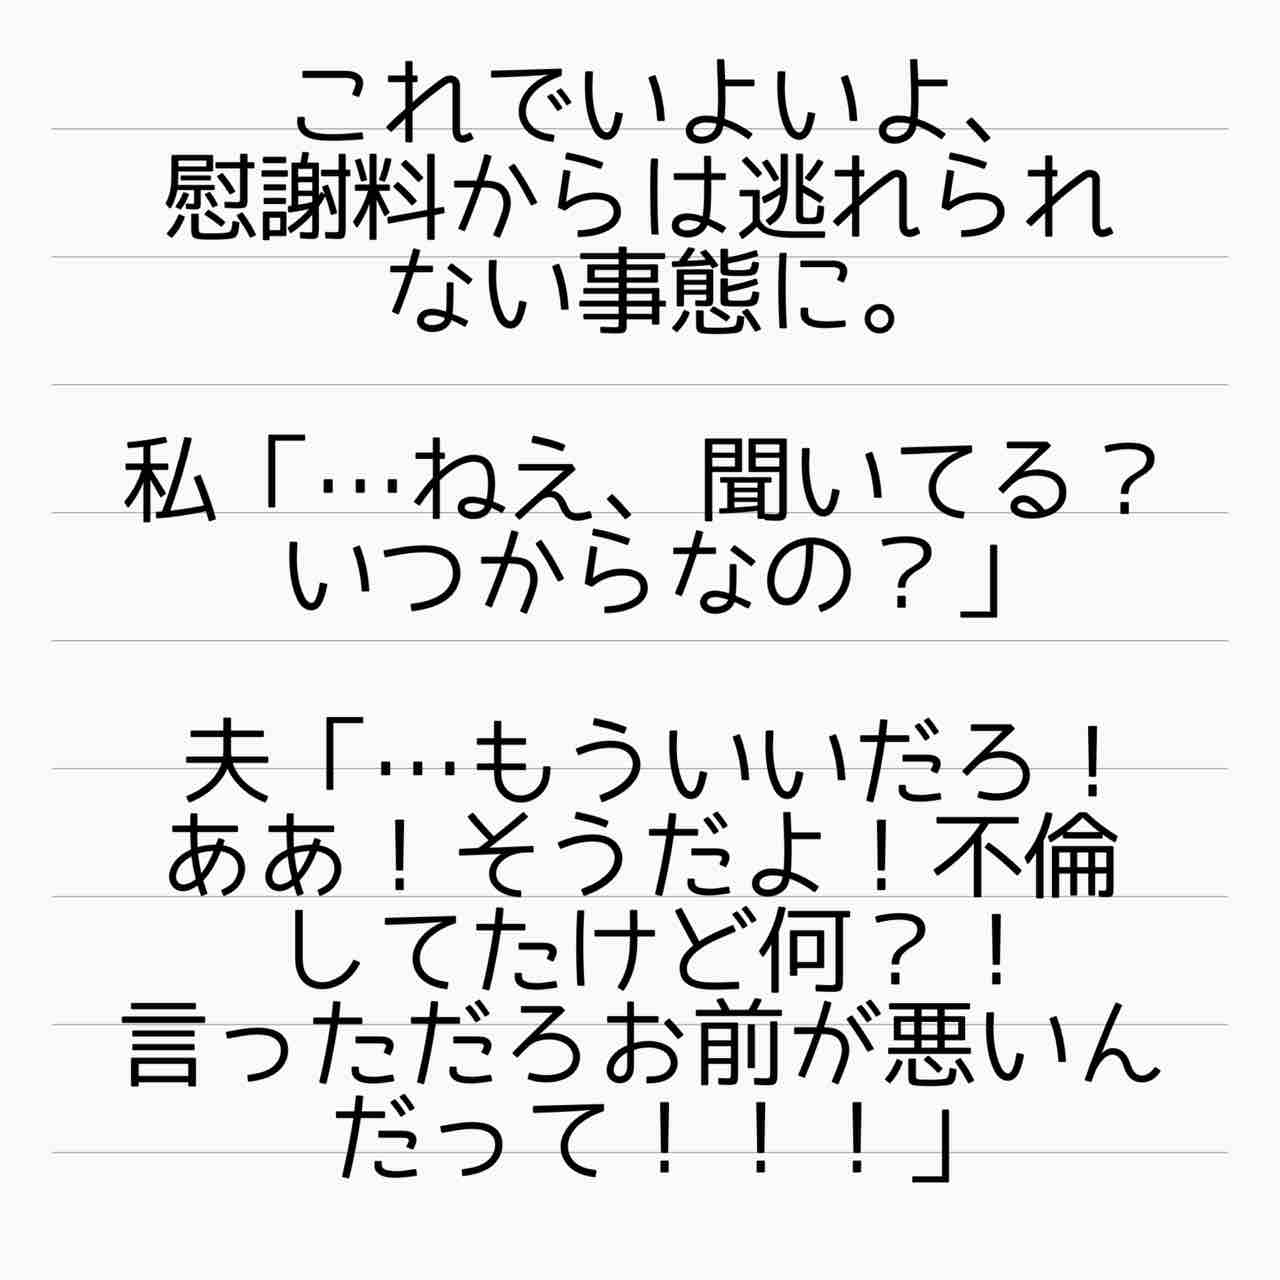 これでいよいよ、
慰謝料からは逃れられ
ない事態に。
私「…ねえ、聞いてる？
いつからなの？」
夫「…もういいだろ！
ああ！そうだよ！不倫
してたけど何？！
言っただろお前が悪いん
だって！！！」